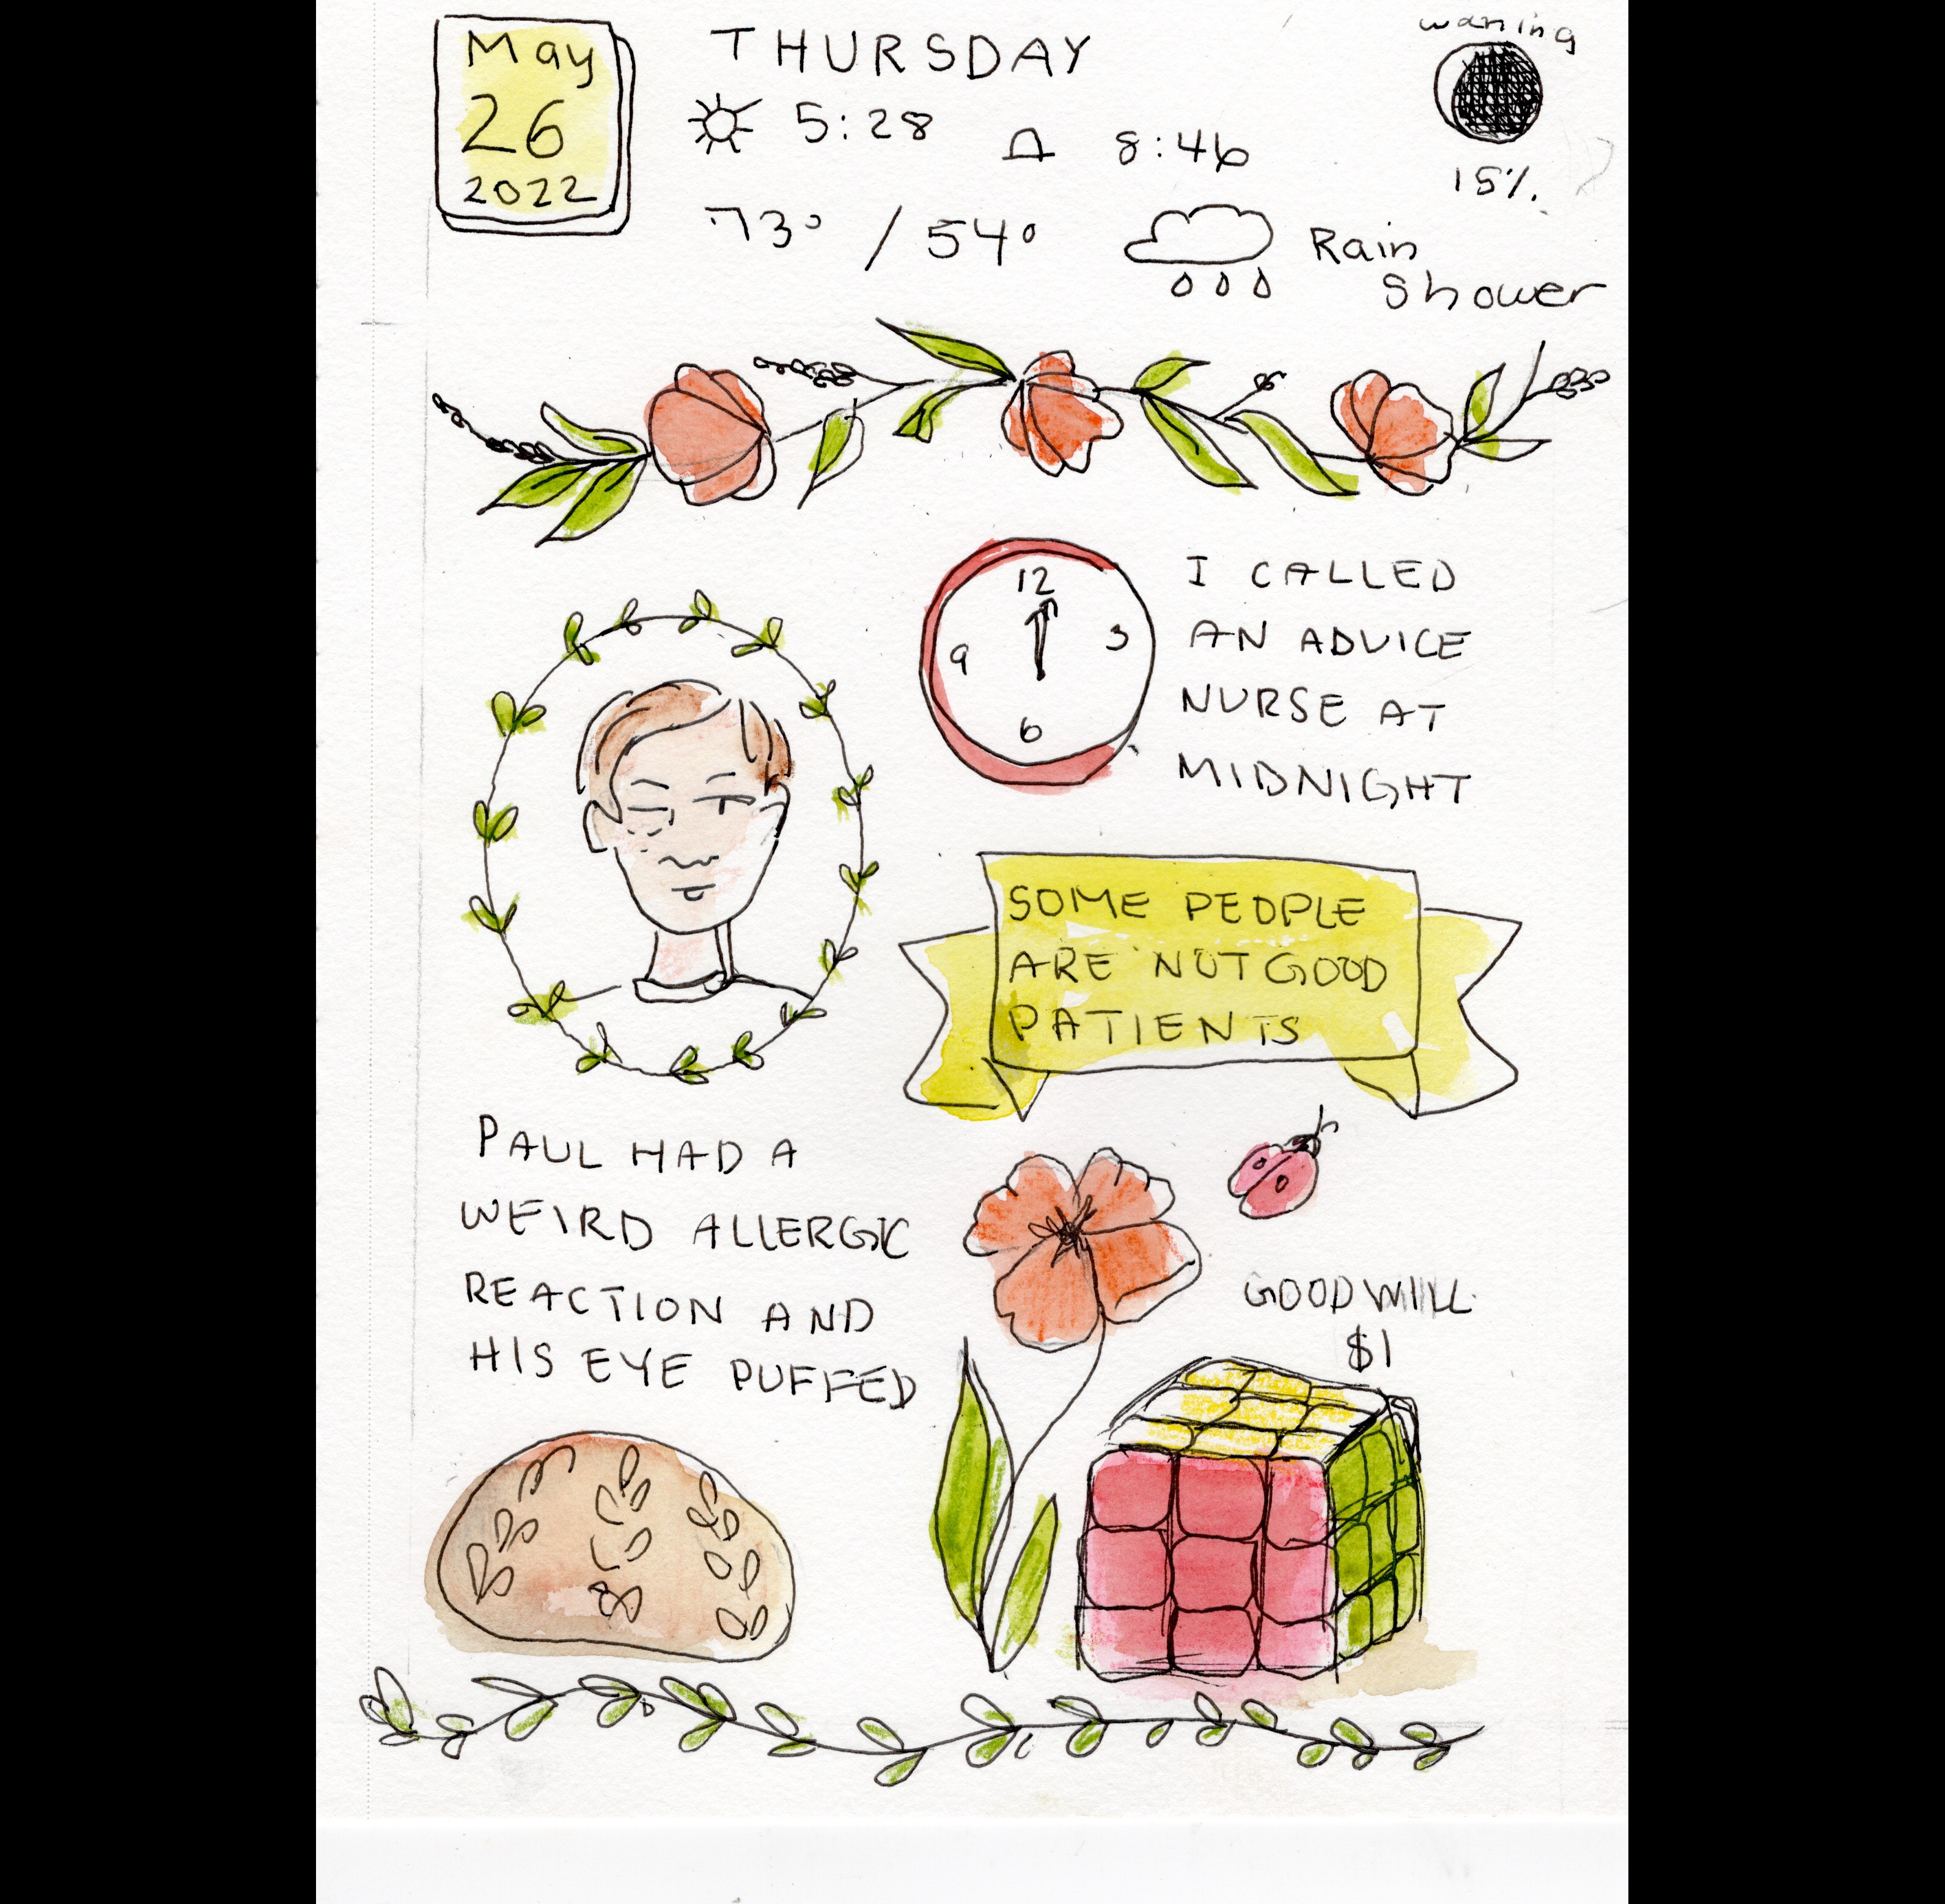 May
26
2022
THURSDAY
5:28 8:46
73° / 54°
Rain
Shower
waning
15%.
12
3
6
9
I CALLED
AN ADVICE
NURSE AT
MIDNIGHT
SOME PEOPLE
ARE NOT GOOD
PATIENTS
PAUL HAD A
WEIRD ALLERGIC
REACTION AND
HIS EYE PUFFED
GOODWILL
$1